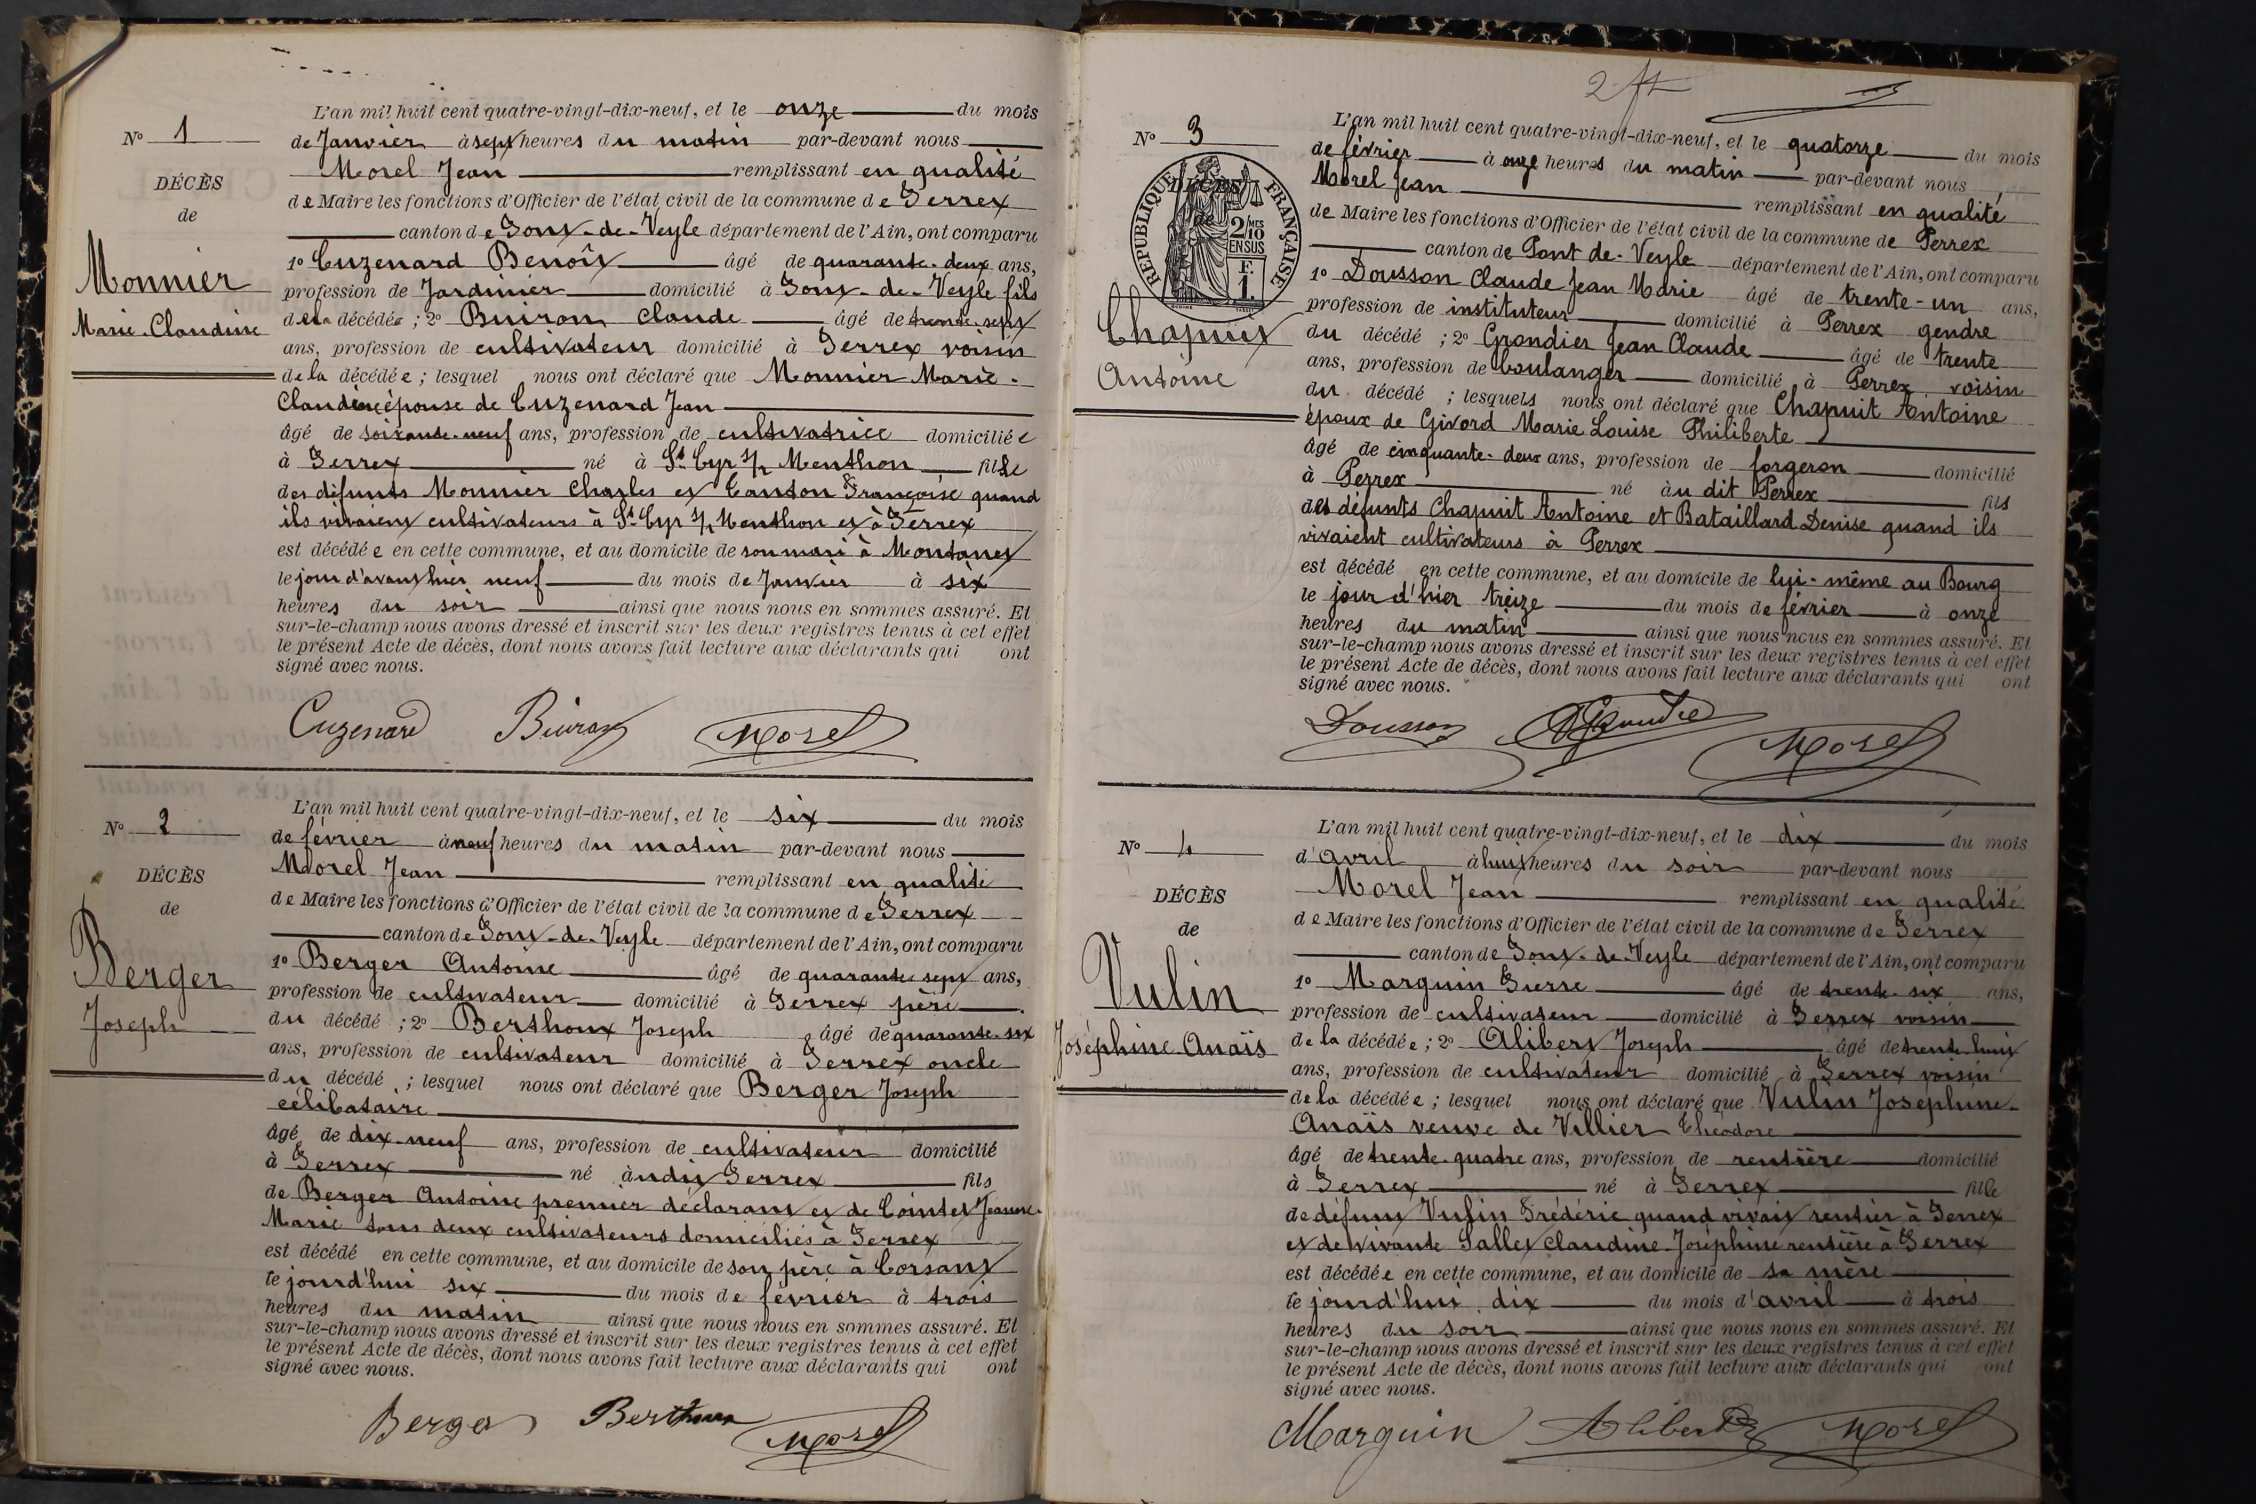 N° 1
DÉCÈS
de
Monnier
Marie Claudine
L'an mil huit cent quatre-vingt-dix-neuf, et le onze du mois
de Janvier à sept heures du matin par-devant nous
Morel Jean remplissant en qualité
de Maire les fonctions d'Officier de l'état civil de la commune de Perrex
canton de Pont-de-Veyle département de l'Ain, ont comparu
1° Cuzenard Benoît âgé de quarante-deux ans,
profession de Jardinier domicilié à Pont-de-Veyle fils
de la décédée ; 2° Buiron Claude âgé de trente-sept
ans, profession de cultivateur domicilié à Perrex voisin
de la décédée ; lesquel nous ont déclaré que Monnier Marie-
Claudine épouse de Cuzenard Jean
âgé de soixante-neuf ans, profession de cultivatrice domiciliée
à Perrex né à St Cyr s/ Menthon fille
des défunts Monnier Charles et Canton Françoise quand
ils vivaient cultivateurs à St Cyr s/ Menthon et à Perrex
est décédée en cette commune, et au domicile de son mari à Montanet
le jour d'avant hier neuf du mois de Janvier à six
heures du soir ainsi que nous nous en sommes assuré. Et
sur-le-champ nous avons dressé et inscrit sur les deux registres tenus à cet effet
le présent Acte de décès, dont nous avons fait lecture aux déclarants qui ont
signé avec nous.
Cuzenard Buiron Morel
N° 2
DÉCÈS
de
Berger
Joseph
L'an mil huit cent quatre-vingt-dix-neuf, et le six du mois
de février à neuf heures du matin par-devant nous
Morel Jean remplissant en qualité
de Maire les fonctions d'Officier de l'état civil de la commune de Perrex
canton de Pont-de-Veyle département de l'Ain, ont comparu
1° Berger Antoine âgé de quarante-sept ans,
profession de cultivateur domicilié à Perrex père
du décédé ; 2° Berthoux Joseph âgé de quarante-six
ans, profession de cultivateur domicilié à Perrex oncle
du décédé ; lesquel nous ont déclaré que Berger Joseph
célibataire
âgé de dix-neuf ans, profession de cultivateur domicilié
à Perrex né à udit Perrex fils
de Berger Antoine premier déclarant et de Cointet Jeanne-
Marie tous deux cultivateurs domiciliés à Perrex
est décédé en cette commune, et au domicile de son père à Corsant
le jourd'hui six du mois de février à trois
heures du matin ainsi que nous nous en sommes assuré. Et
sur-le-champ nous avons dressé et inscrit sur les deux registres tenus à cet effet
le présent Acte de décès, dont nous avons fait lecture aux déclarants qui ont
signé avec nous.
Berger Berthoux Morel
2 ft
N° 3
DÉCÈS
de
RÉPUBLIQUE FRANÇAISE
2/10 MES
EN SUS
F.
1.
Chapuit
Antoine
L'an mil huit cent quatre-vingt-dix-neuf, et le quatorze du mois
de février à onze heures du matin par-devant nous
Morel Jean remplissant en qualité
de Maire les fonctions d'Officier de l'état civil de la commune de Perrex
canton de Pont de-Veyle département de l'Ain, ont comparu
1° Dousson Claude Jean Marie âgé de trente-un ans,
profession de instituteur domicilié à Perrex gendre
du décédé ; 2° Grandier Jean Claude âgé de trente
ans, profession de boulanger domicilié à Perrex voisin
du décédé ; lesquels nous ont déclaré que Chapuit Antoine
époux de Givord Marie Louise Philiberte
âgé de cinquante-deux ans, profession de forgeron domicilié
à Perrex né àu dit Perrex fils
des défunts Chapuit Antoine et Bataillard Denise quand ils
vivaient cultivateurs à Perrex
est décédé en cette commune, et au domicile de lui-même au Bourg
le jour d'hier treize du mois de février à onze
heures du matin ainsi que nous nous en sommes assuré. Et
sur-le-champ nous avons dressé et inscrit sur les deux registres tenus à cet effet
le présent Acte de décès, dont nous avons fait lecture aux déclarants qui ont
signé avec nous.
Dousson Morel
N° 4
DÉCÈS
de
Vulin
Joséphine Anaïs
L'an mil huit cent quatre-vingt-dix-neuf, et le dix du mois
d'avril à huit heures du soir par-devant nous
Morel Jean remplissant en qualité
de Maire les fonctions d'Officier de l'état civil de la commune de Perrex
canton de Pont-de-Veyle département de l'Ain, ont comparu
1° Marguin Pierre âgé de trente-six ans,
profession de cultivateur domicilié à Perrex voisin
de la décédée ; 2° Alibert Joseph âgé de trente-huit
ans, profession de cultivateur domicilié à Perrex voisin
de la décédée ; lesquel nous ont déclaré que Vulin Joséphine-
Anaïs veuve de Villier Théodore
âgé de trente-quatre ans, profession de rentière domicilié
à Perrex né à Perrex fille
de défunt Vulin Frédéric quand vivait rentier à Perrex
et de vivante Sallet Claudine-Joséphine rentière à Perrex
est décédée en cette commune, et au domicile de sa mère
le jourd'hui dix du mois d'avril à trois
heures du soir ainsi que nous nous en sommes assuré. Et
sur-le-champ nous avons dressé et inscrit sur les deux registres tenus à cet effet
le présent Acte de décès, dont nous avons fait lecture aux déclarants qui ont
signé avec nous.
Marguin Alibert Morel